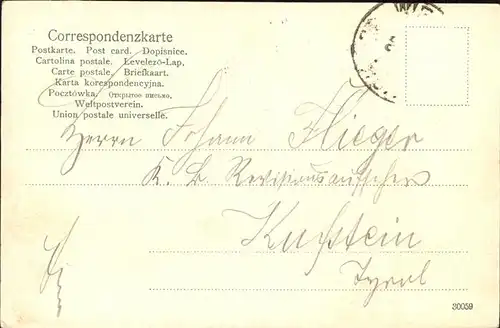 Correspondenzkarte
Postkarte. Post card. Dopisnice.
Cartolina postale. Levelező-Lap.
Carte postale. Briefkaart.
Karta korespondencyjna.
Pocztówka. Открытое письмо.
Weltpostverein.
Union postale universelle.
Herrn Johann Flieger
K. B. Revisionsaufseher
Kufstein
Tyrol
30059